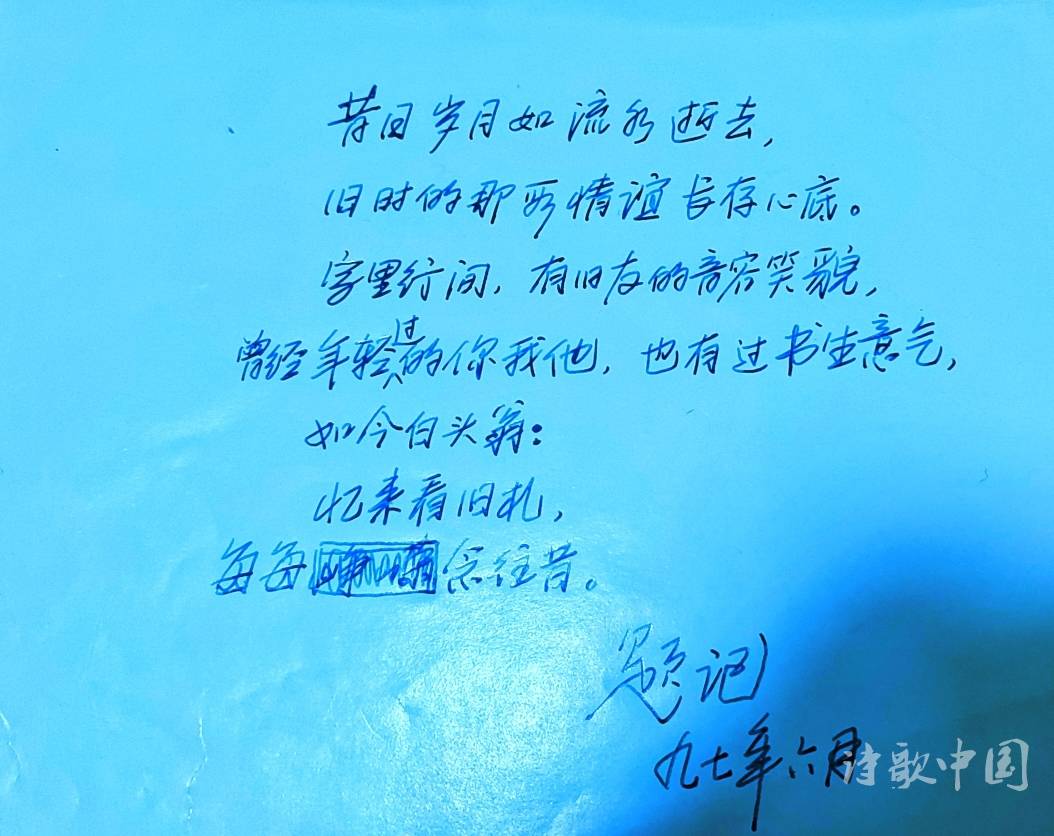 昔日岁月如流水逝去，
旧时的那段情谊长存心底。
字里行间，有旧友的音容笑貌，
曾经年轻过的你我他，也有过书生意气，
如今白头翁：
忆来看旧札，
每每念往昔。
题记
九七年六月
诗歌中国